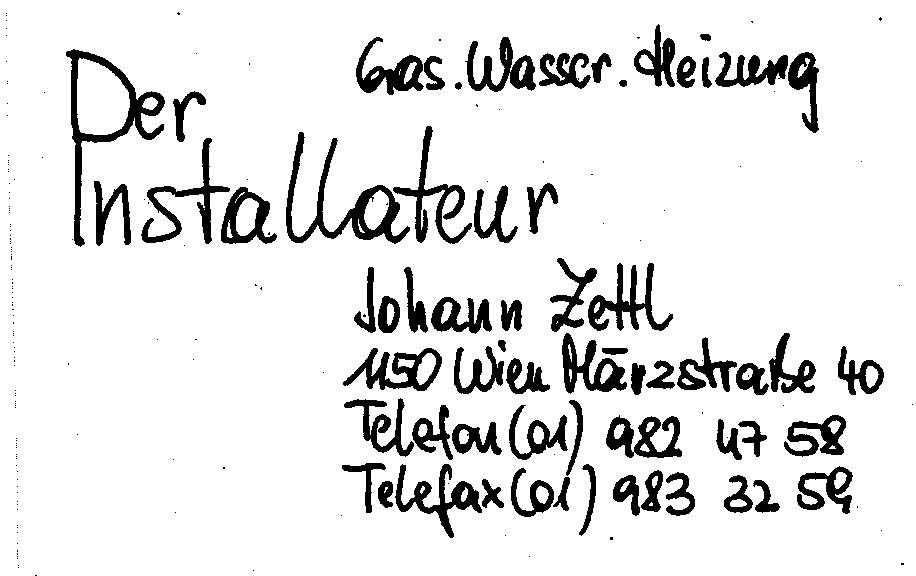 Gas. Wasser. Heizung
Der
Installateur
Johann Zettl
1150 Wien Märzstraße 40
Telefon (01) 982 47 58
Telefax (01) 983 32 59